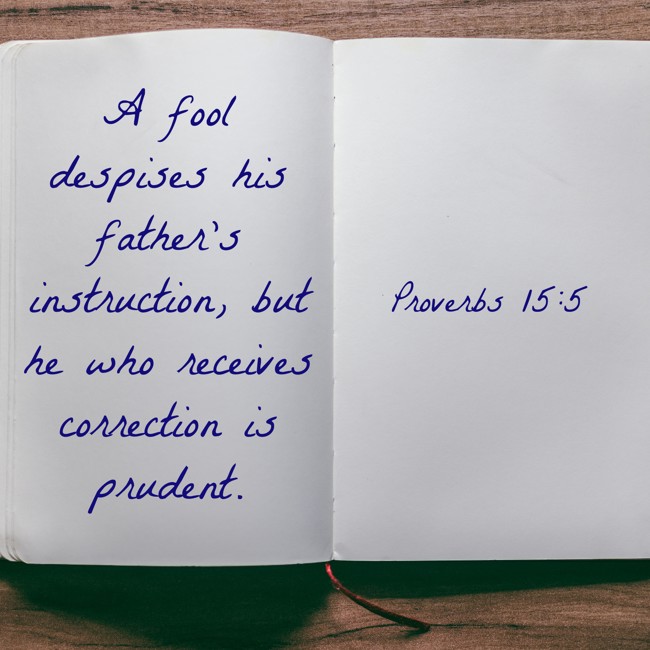 A fool
despises his
father's
instruction, but
he who receives
correction is
prudent.
Proverbs 15:5